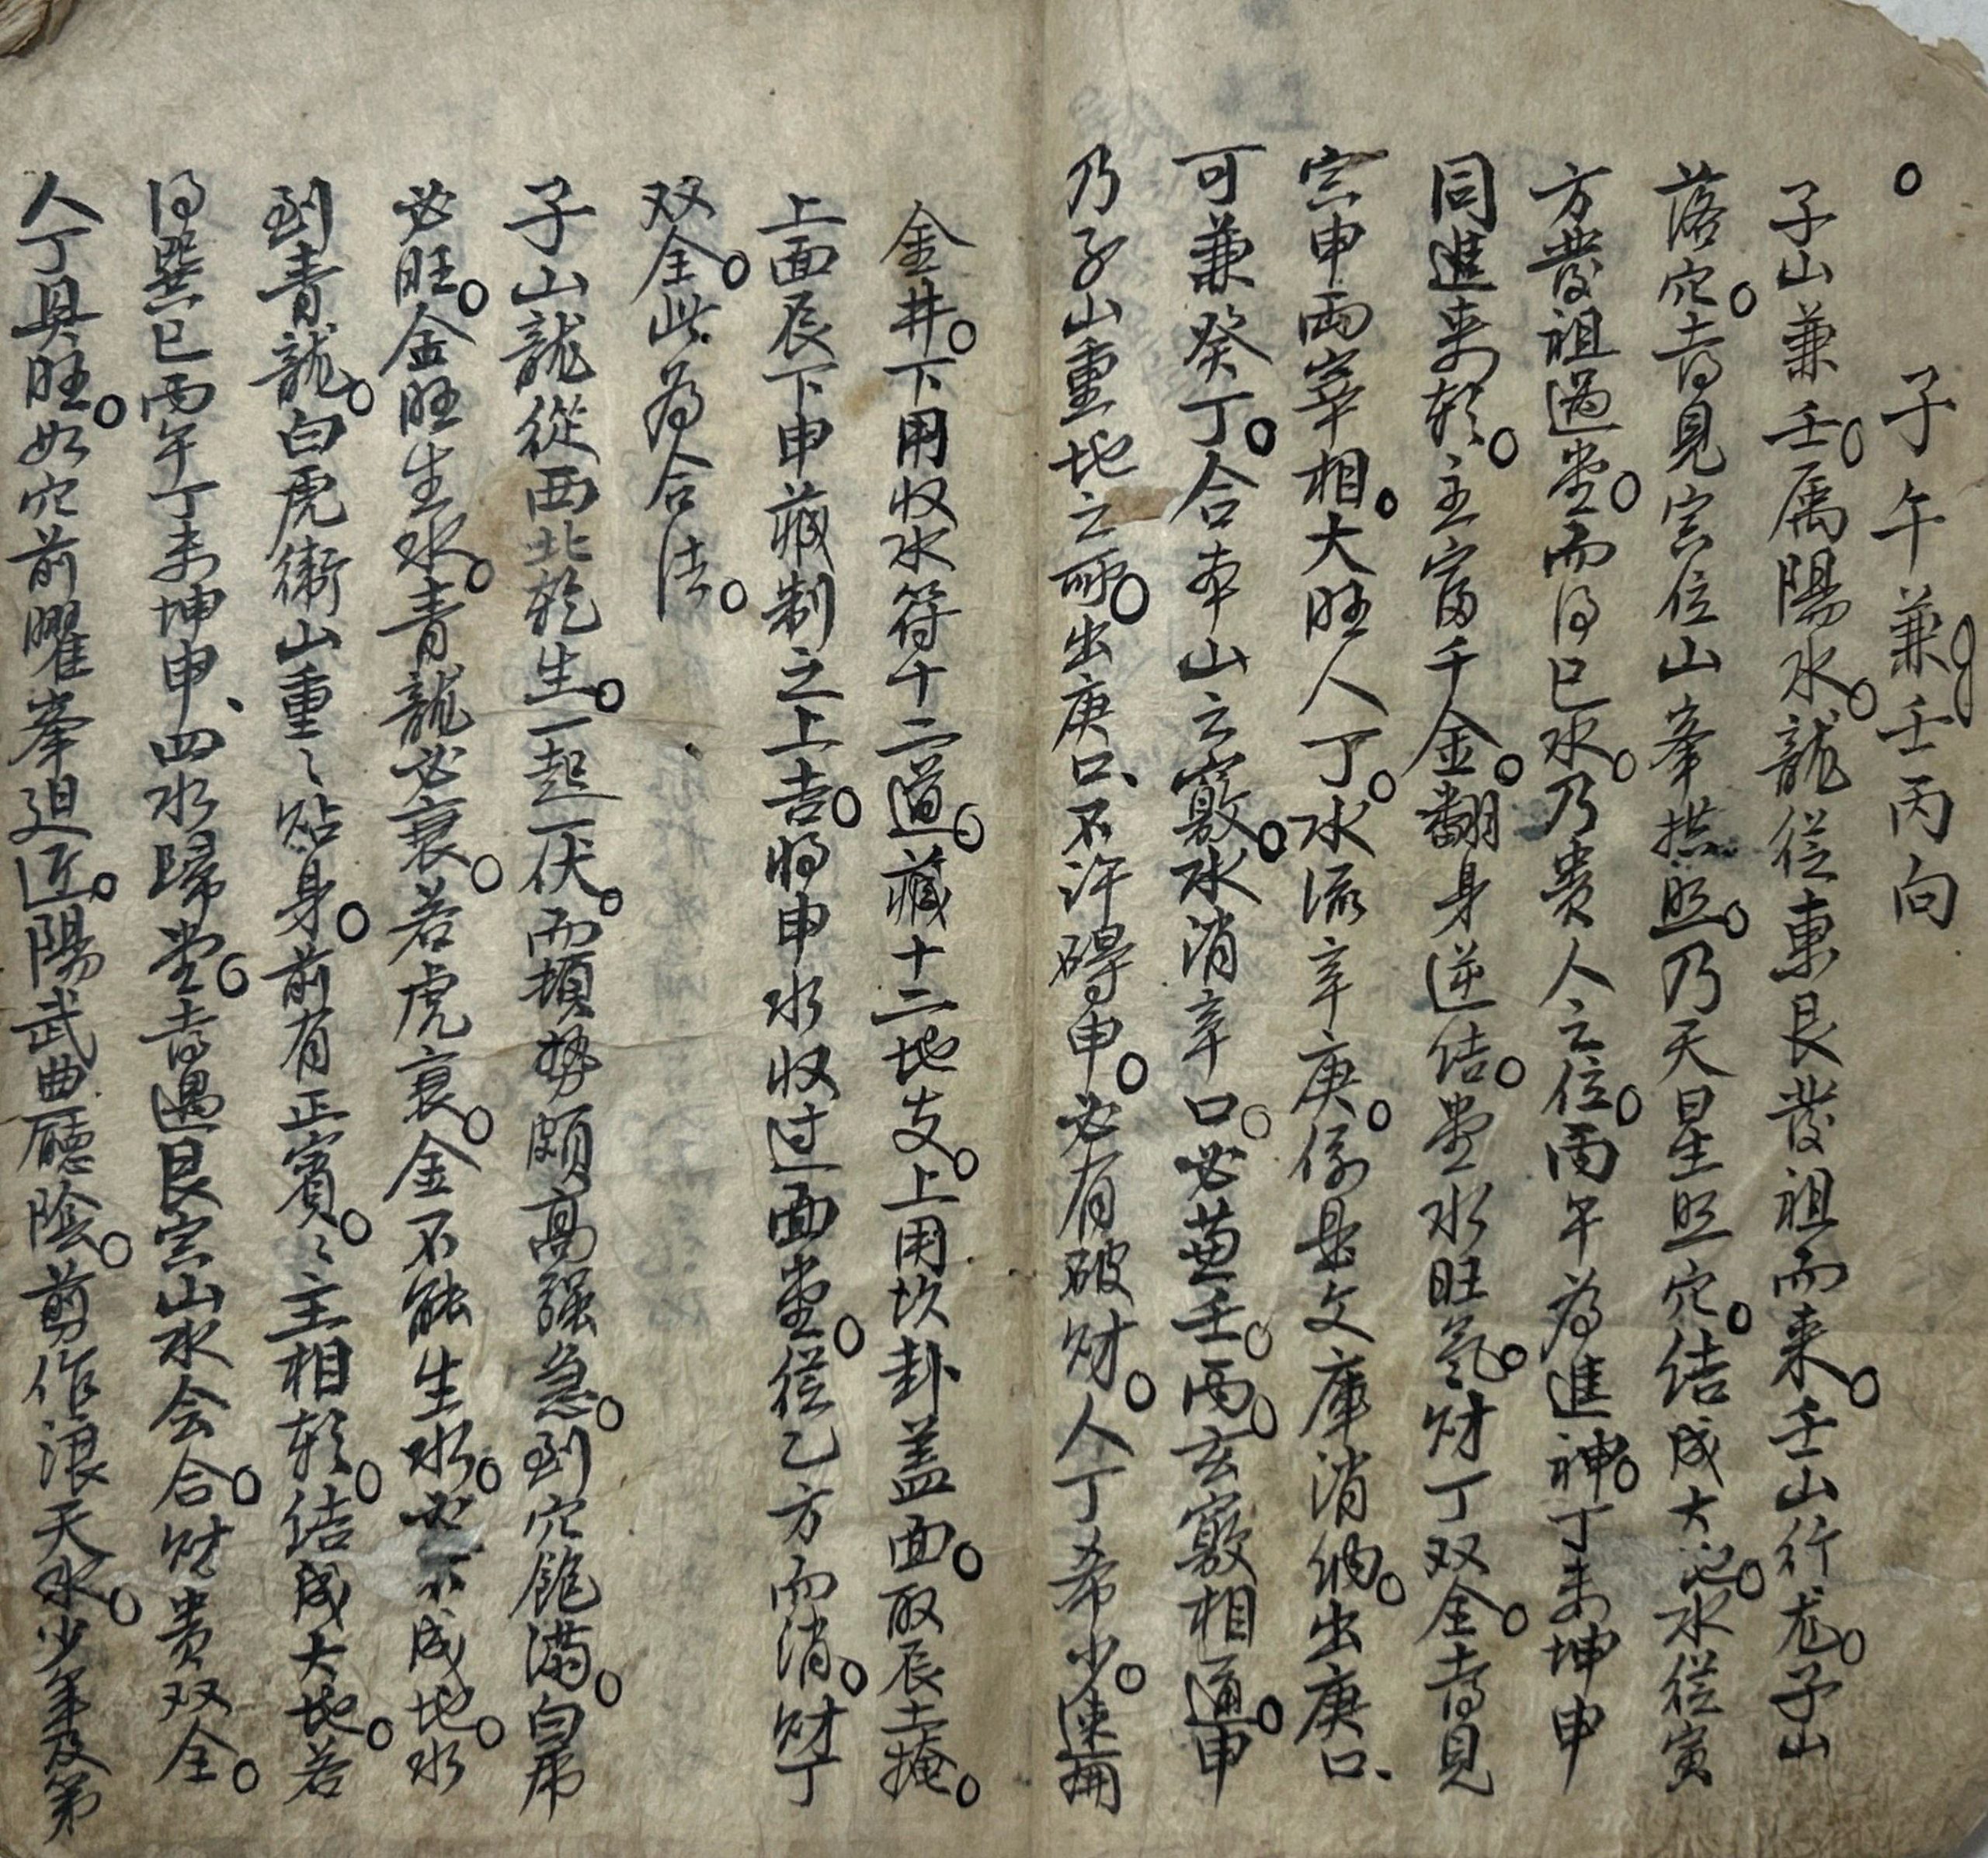 子午兼壬丙向
子山兼壬。属陽水。龍從東艮發祖而来。壬山行龙。子山
落穴。喜見寅位山峯拱照。乃天星照穴。结成大地。水從寅
方發祖過堂。而得巳水。乃貴人之位。丙午為進神。丁未坤申
同進来朝。主富千金。翻身逆结。堂水旺氣。财丁双全。喜見
寅申两宰相。大旺人丁。水流辛庚。係是文庫消纳。出庚口、
可兼癸丁。合本山之竅。水消辛口。必兼壬。丙。玄竅相通。申
乃子山重地之所。出庚口、不许碍申。必有破财。人丁希少。速捅
金井。下用收水符十二道。藏十二地支。上用坎卦盖面。取辰土掩。
上面辰下申藏制之上吉。将申水收过面堂。從乙方而消。财丁
双全。此為合法。
子山龍從西北乾生。一起一伏。而頓势頗高强急。到穴飽满。白虎
必旺。金旺生水。青龍必衰。若虎衰。金不能生水。必不成地。水
到青龍。白虎衛山重〻贴身。前有正賓。〻主相朝。结成大地。若
得巽巳丙午丁未坤申、四水歸堂。喜遇艮寅山水会合。财貴双全。
人丁具旺。如穴前曜峯迫近。陽武曲廳陰。剪作浪天水。少年及第